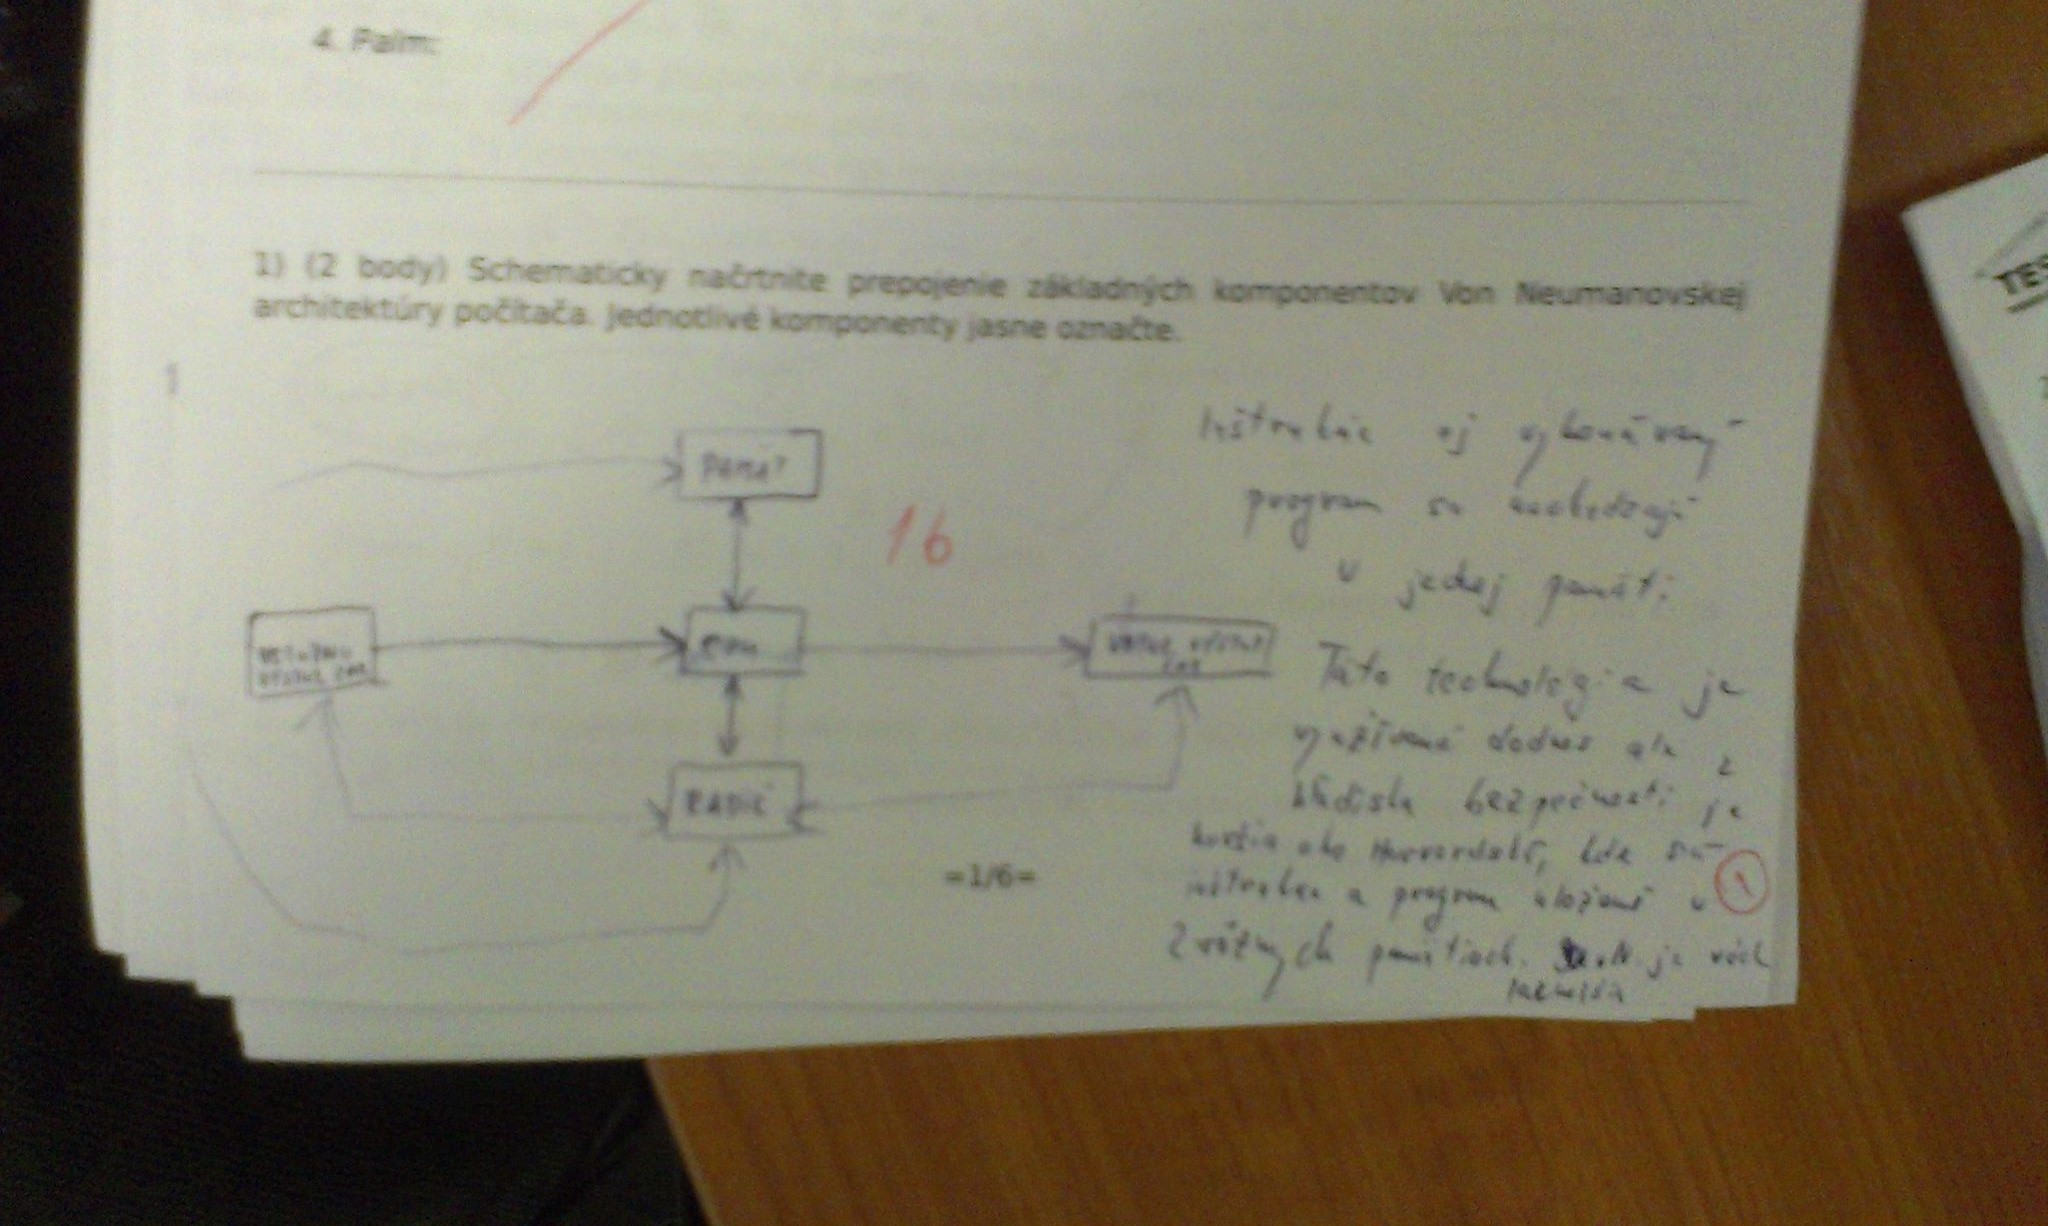 4. Palm:
1) (2 body) Schematicky načrtnite prepojenie základných komponentov Von Neumanovskej
architektúry počítača. Jednotlivé komponenty jasne označte.
1
Inštrukcie aj vykonávaný
program sa nachádzajú
v jednej pamäti
PAMAŤ
1b
CPU
RADIČ
Táto technológia je
využívaná dodnes ale z
hľadiska bezpečnosti je
horšia ako Harvardská, kde sú
inštrukcie a program uložené v
1
2 rôznych pamätiach. je
=1/6=
TES